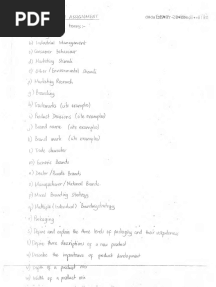 PDF
ASSIGNMENT
Topics:-
a) Indention Management
b) Consumer Behaviour
c) Marketing Trends
d) Urban / Environmental Trends
e) Marketing Research
f) Branding
g) Trademarks (six examples)
h) Product Decisions (six examples)
i) Brand name (six examples)
j) Brand mark (six examples)
k) Trade character
m) Generic Brands
n) Dealer / Private Brands
o) Manufacturer / National Brands
p) Mixed Branding strategy
q) Multiple (Individual) Branding strategy
r) Packaging
s) Define and explain the three levels of packaging and their importance
t) Define three descriptions of a new product
u) Consider the importance of product development
v) Depth of a product mix
w) Width of a product mix